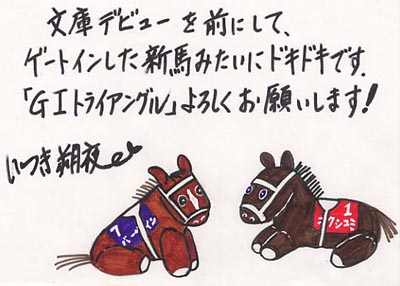 文庫デビューを前にして、
ゲートインした新馬みたいにドキドキです.
「GIトライアングル」よろしくお願いします!
いつき朔夜
7
1